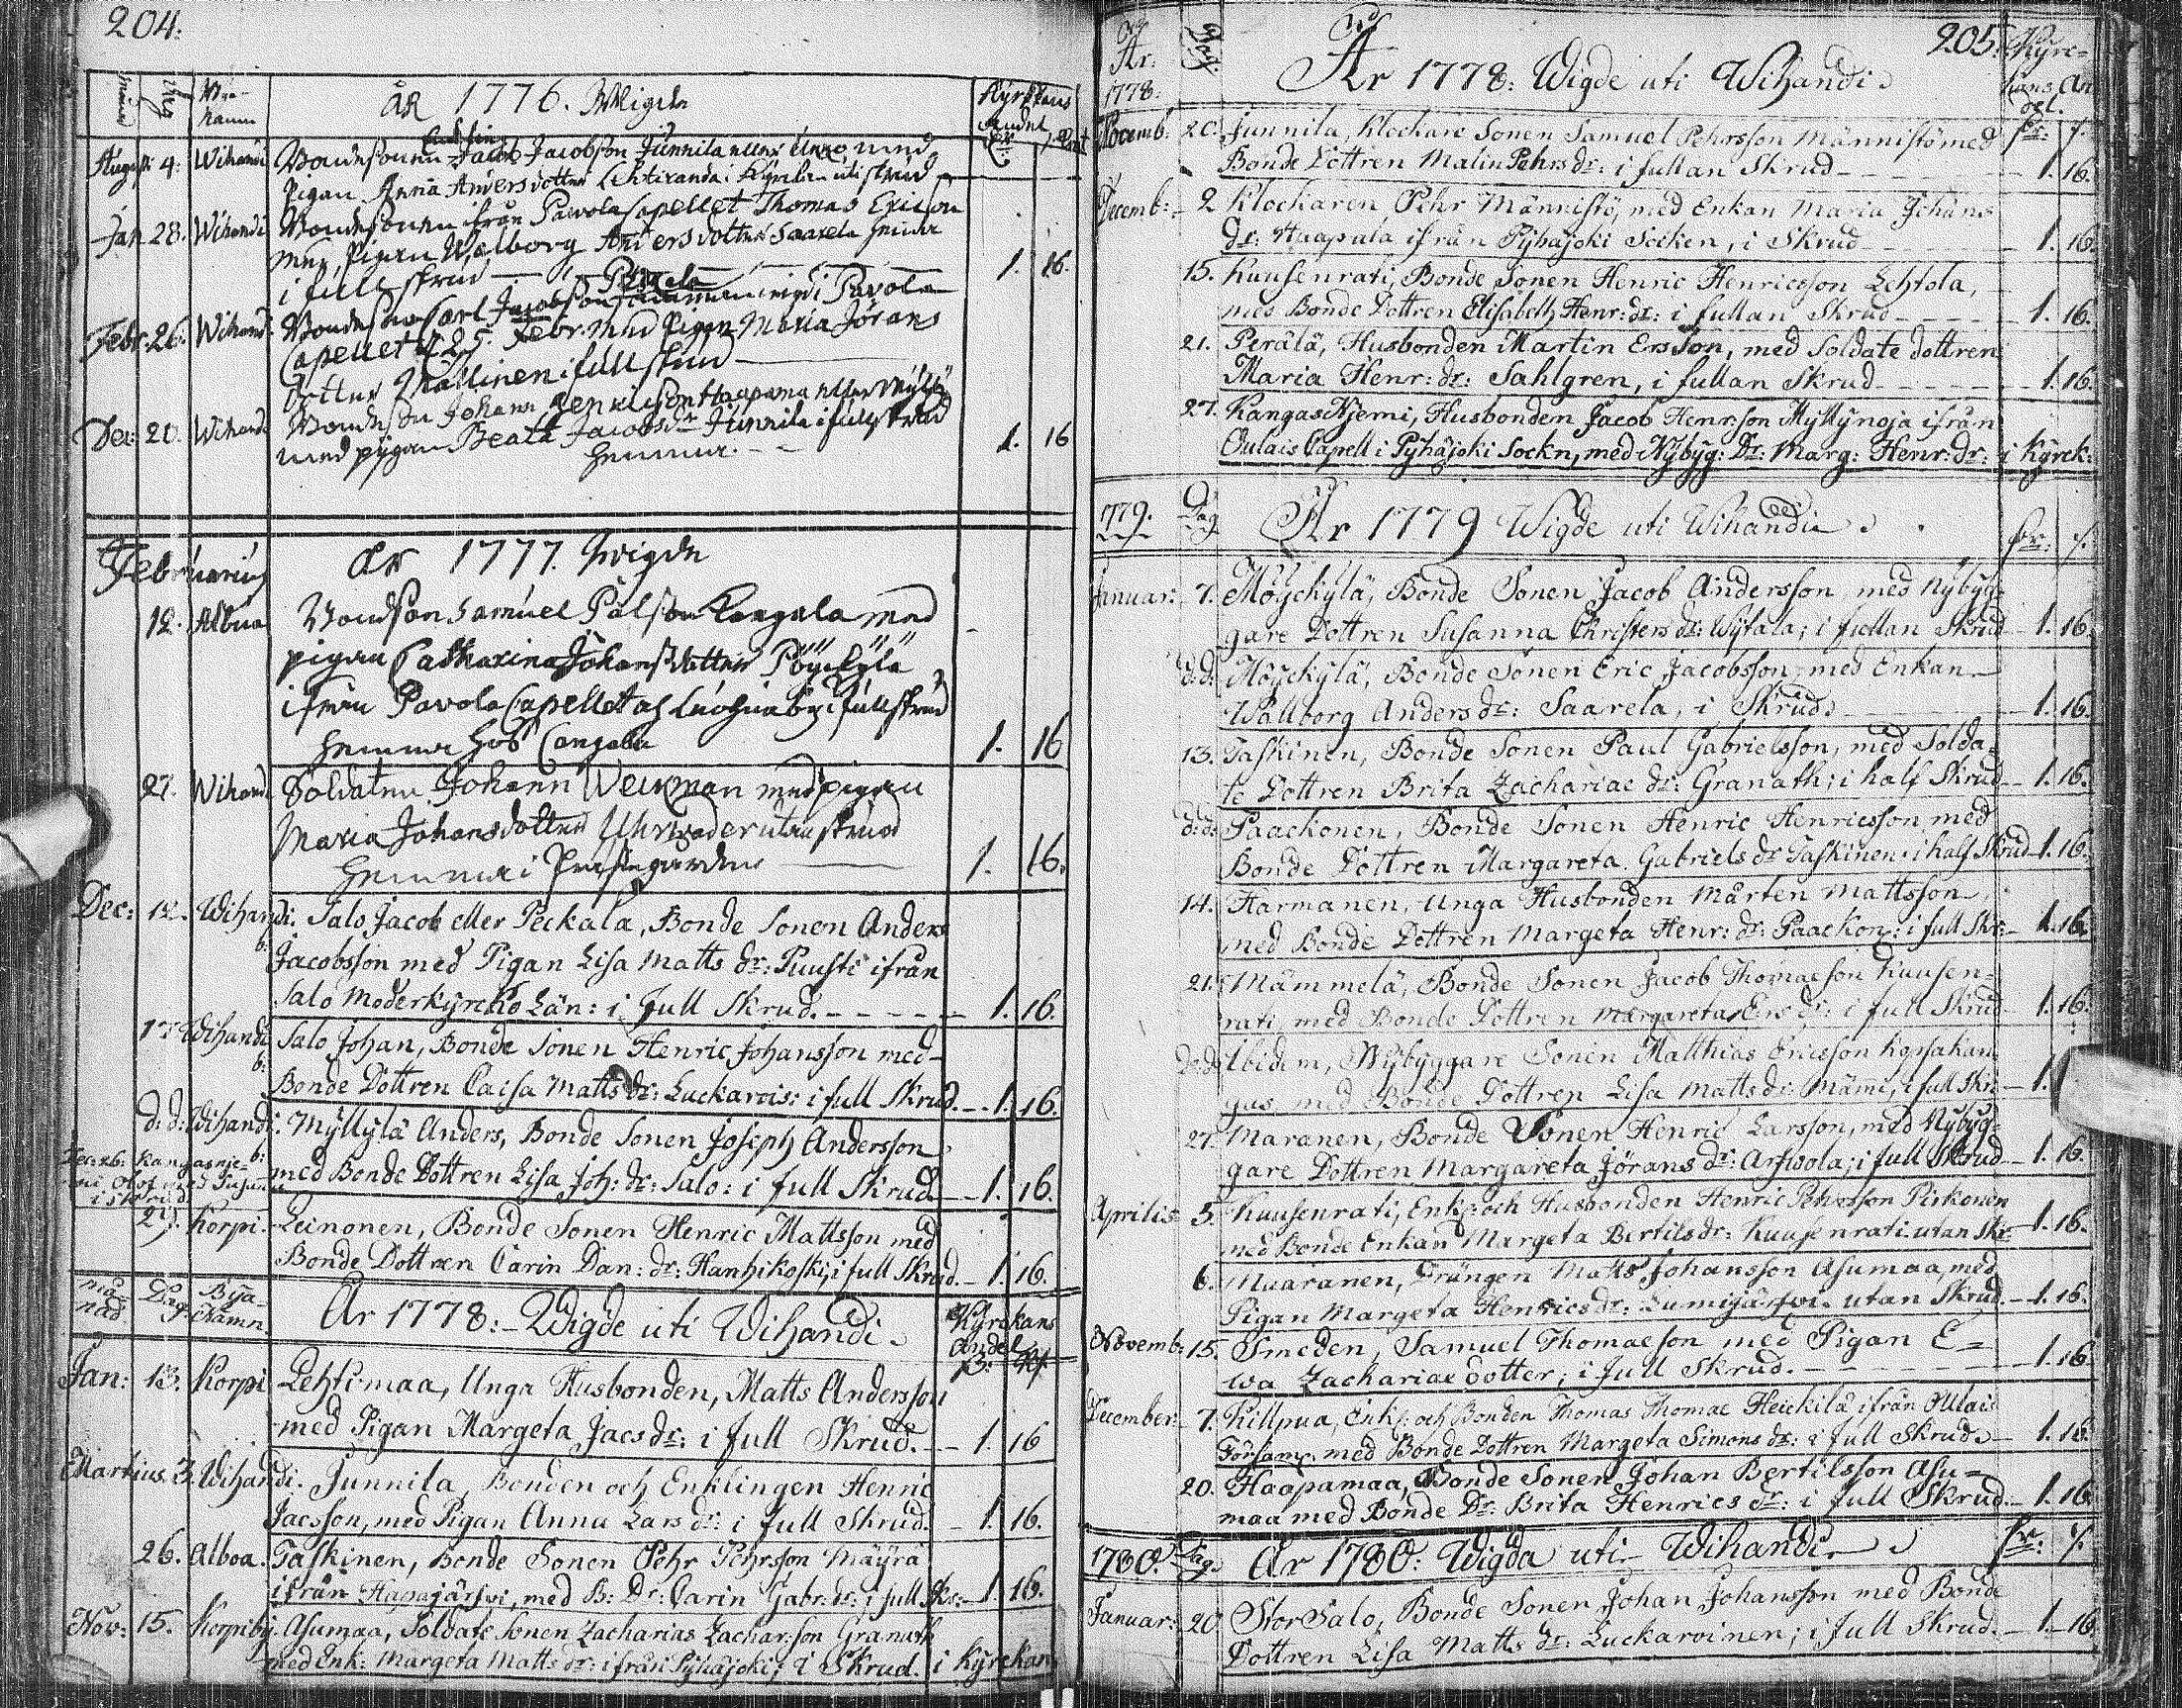 204.
Månad Dag By- namn År 1776. Wigde Kyrkans Andel
Augusti 4. Wihandi Bondesonen Jacob Jacobson Junnila eller Unge med
Pigan Anna Andersdotter Lehtiranda
Jan 28. Wihandi Bondesonen ifrån Pavola Capellet Thomas Ericson
med Pigan Walborg Andersdotter Saarela hemma
i full skrud 1. 16.
Febr. 26. Wihandi Bondeson Carl Jacobson i Pavola
Capellet d 25 Febr. med Pigan Maria Jörans
dotter Mallinen i full skrud
Dec: 20. Wihandi Bondeson Johan Henricson Haapama eller
med pigan Beata Jacobsdr Junnila i full skrud
hemma. 1. 16
Februarius År 1777. wigde
12. Albua Bondson Samuel Pålson Kangala med
pigan Catharina Johansdotter Pöyckylä
ifrån Pavola Capellet af Luohua by i full skrud
hemma hos Cangala 1. 16
27. Wihand Soldaten Johann Weckman med pigan
Maria Johansdotter utan skrud
hemma i Prestegården 1. 16.
Dec: 12. Wihandi b: Salo Jacob eller Peckala, Bonde Sonen Anders
Jacobsson med Pigan Lisa Matts dr: Puusti ifrån
Salo Moderkyrcko Län: i full Skrud. 1. 16.
17 Wihandi b: Salo Johan, Bonde Sonen Henric Johansson med
Bonde Dottren Caisa Matts dr: Luckarois: i full Skrud. 1. 16.
d: d: Wihandi b: Myllylä Anders, Bonde Sonen Joseph Andersson
med Bonde Dottren Lisa Joh: dr: Salo: i full Skrud 1. 16.
Dec: 26: Kangasnie-
mi Olof med Susanna
i skrud
29. Korpi. Leinonen, Bonde Sonen Henric Mattsson med
Bonde Dottren Carin Dan: dr: Hanhikoski; i full Skrud. 1. 16.
Må- nad Dag Bya- namn År 1778: Wigde uti Wihandi. Kyrckans Andel
Jan: 13. Korpi Lehtimaa, Unga Husbonden, Matts Andersson
med Pigan Margeta Jacs dr: i full Skrud. 1. 16
Martius 3. Wihandi. Junnila, Bonden och Enklingen Henric
Jacsson, med Pigan Anna Lars dr: i full Skrud. 1. 16.
26. Alboa. Taskinen, Bonde Sonen Pehr Pehrsson Mäyrä
ifrån Hapajärfvi, med B: Dr: Carin Gabr: dr: i full Skr: 1. 16.
Nov: 15. Korpiby. Asumaa, Soldate Sonen Zacharias Zachar:son Granath
med Enk: Margeta Matts dr: ifrån Pyhäjoki; i Skrud. i kyrckan
205.
År: 1778. Dag. År 1778: Wigde uti Wihandi. Kyrc- kans An del.
Novemb: 20. Junnila, Klockare Sonen Samuel Pehrsson Männistö med
Bonde Dottren Malin Pehrs dr: i fullan Skrud 1. 16.
Decemb: 2 Klockaren Pehr Männistö, med Enkan Maria Johans
dr: Haapala ifrån Pyhäjoki Socken, i Skrud 1. 16.
15. Kuusenrati, Bonde Sonen Henric Henricsson Lehtola,
med Bonde Dottren Elisabeth Henr: dr: i fullan Skrud 1. 16.
21. Perälä, Husbonden Martin Ersson, med Soldate dottren
Maria Henr: dr: Sahlgren, i fullan Skrud 1. 16.
27. Kangas Njemi, Husbonden Jacob Henr:son Myllynoja ifrån
Oulais Capell i Pyhäjoki Sockn, med Nybyg: Dr: Marg: Henr: dr: i Kyrck:
1779. Dag År 1779 Wigde uti Wihandi.
Januar: 7. Möyckylä, Bonde Sonen Jacob Andersson, med Nybyg-
gare Dottren Susanna Christers dr: Wytala; i fullan Skrud 1. 16.
d: d: Möyckylä, Bonde Sonen Eric Jacobsson, med Enkan
Wallborg Anders dr: Saarela, i Skrud 1. 16.
13. Taskinen, Bonde Sonen Paul Gabrielsson, med Solda-
te Dottren Brita Zachariae dr: Granath; i half Skrud 1. 16.
d: d: Paackonen, Bonde Sonen Henric Henricsson med
Bonde Dottren Margareta Gabriels dr Taskinen i half Skrud 1. 16.
14. Harmanen, Unga Husbonden Mårten Mattsson,
med Bonde Dottren Margeta Henr: dr: Paackon: i full Skr: 1. 16.
21. Mämmelä, Bonde Sonen Jacob Thomaeson Kuusen-
rati, med Bonde Dottren Margareta Ers dr: i full Skrud 1. 16.
d: d: Ibidem, Nybyggare Sonen Matthias Ericsson Kopsakan-
gus, med Bonde Dottren Lisa Matts dr: Mämi, i full Skr: 1.
27. Maranen, Bonde Sonen Henric Larsson, med Nybyg-
gare Dottren Margareta Jörans dr: Arfwola; i full Skrud 1. 16.
Aprilis 5. Kuusenrati, Enk: och Husbonden Henric Pehrsson Pirkonen
med Bonde Enkan Margeta Bertils dr: Kuusenrati utan Skr: 1. 16.
6. Maaranen, Drängen Matts Johansson Asumaa, med
Pigan Margeta Henrics dr: Lumijärfvi. utan Skrud. 1. 16.
Novemb: 15. Smeden, Samuel Thomaeson med Pigan E-
wa Zachariae dotter; i full Skrud. 1. 16
December: 7. Killpua, Enk: och Bonden Thomas Thomae Heickilä ifrån Oulais
Församl. med Bonde Dottren Margeta Simons dr: i full Skrud. 1. 16.
20. Haapamaa, Bonde Sonen Johan Bertilsson Asu-
maa med Bonde Dr: Brita Henrics dr: i full Skrud. 1. 16
1780. Dag. År 1780: Wigda uti Wihandi.
Januar: 20 Stor Salo, Bonde Sonen Johan Johansson med Bonde
Dottren Lisa Matts dr: Luckaroinen; i full Skrud. 1. 16